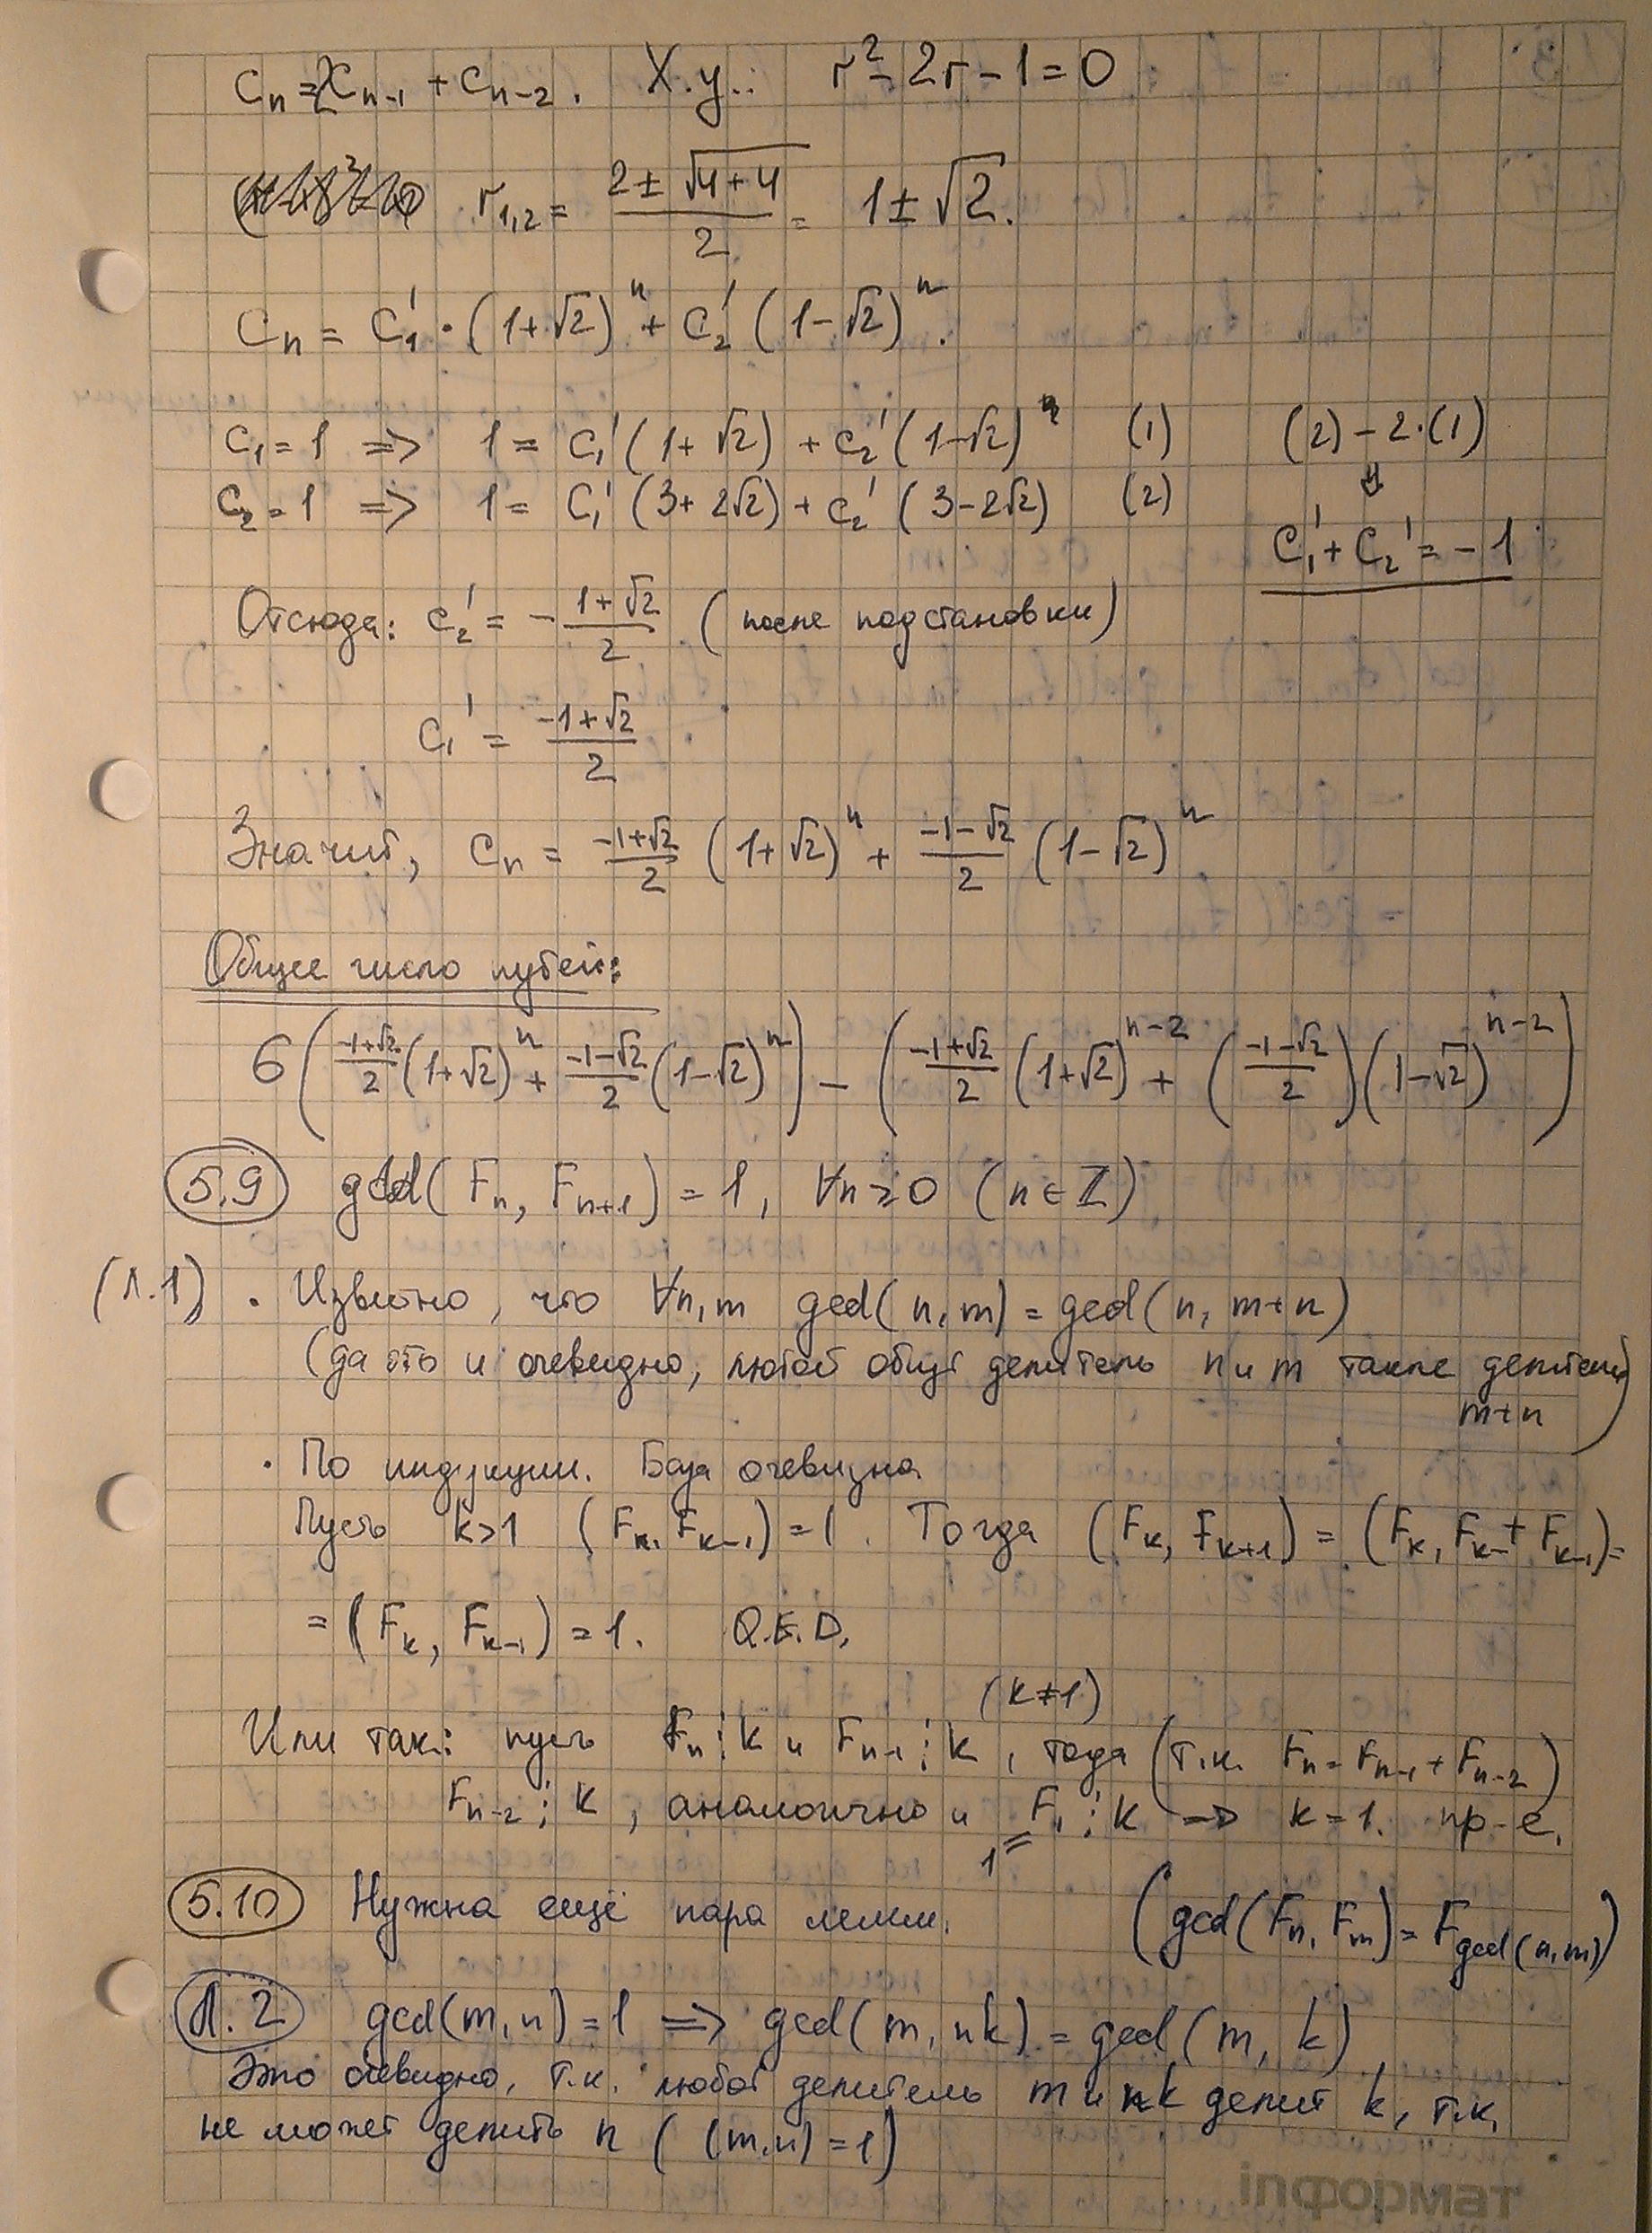 Cₙ = 2Cₙ₋₁ + Cₙ₋₂. Х.у.: r² - 2r - 1 = 0
r₁,₂ = (2 ± √(4+4))/2 = 1 ± √2.
Cₙ = C₁' · (1+√2)ⁿ + C₂' (1-√2)ⁿ.
C₁ = 1 => 1 = C₁'(1+√2) + C₂'(1-√2) (1) (2) - 2·(1)
C₂ = 1 => 1 = C₁'(3+2√2) + C₂'(3-2√2) (2) ⇓
C₁' + C₂' = -1
Отсюда: C₂' = -(1+√2)/2 (после подстановки)
C₁' = (-1+√2)/2
Значит, Cₙ = (-1+√2)/2 (1+√2)ⁿ + (-1-√2)/2 (1-√2)ⁿ
Общее число путей:
6((-1+√2)/2 (1+√2)ⁿ + (-1-√2)/2 (1-√2)ⁿ) - ((-1+√2)/2 (1+√2)ⁿ⁻² + ((-1-√2)/2)(1-√2)ⁿ⁻²)
5.9 gcd(Fₙ, Fₙ₊₁) = 1, ∀n ≥ 0 (n ∈ ℤ)
(Л.1) · Известно, что ∀n,m gcd(n,m) = gcd(n, m+n)
(да это и очевидно, любой общ делитель n и m также делитель
m+n)
· По индукции. База очевидна
Пусть k>1 (Fₖ, Fₖ₋₁) = 1. Тогда (Fₖ, Fₖ₊₁) = (Fₖ, Fₖ + Fₖ₋₁) =
= (Fₖ, Fₖ₋₁) = 1. Q.E.D.
(k≠1)
Или так: пусть Fₙ ⋮ k и Fₙ₋₁ ⋮ k, тогда (т.к. Fₙ = Fₙ₋₁ + Fₙ₋₂)
Fₙ₋₂ ⋮ k, аналогично и F₁ ⋮ k => k = 1. пр-е.
1 =
5.10 Нужна ещё пара лемм. (gcd(Fₙ, Fₘ) = F_gcd(n,m))
Л.2 gcd(m,n) = 1 => gcd(m, nk) = gcd(m, k),
Это очевидно, т.к. любой делитель m и nk делит k, т.к.
не может делить n ((m,n) = 1)
inформат